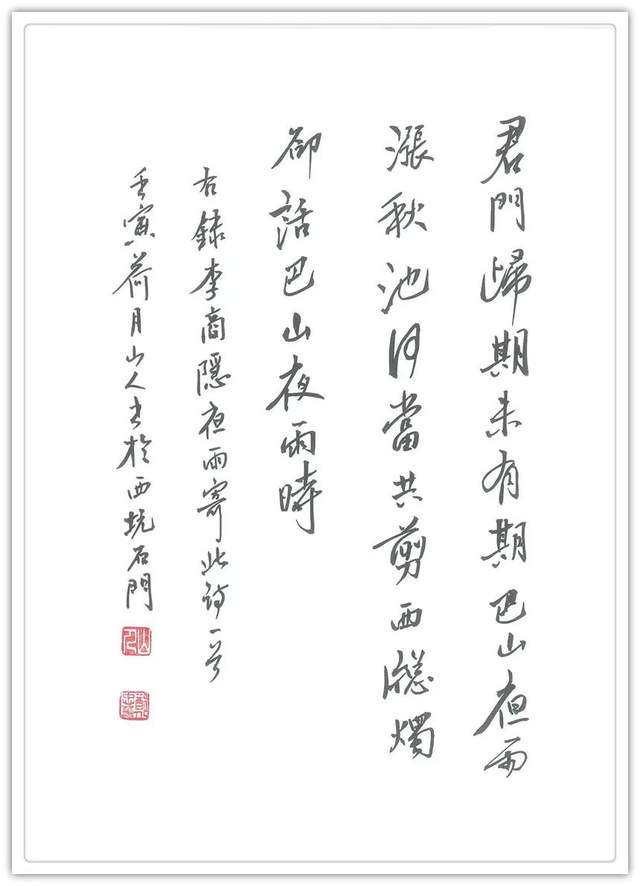 君門歸期未有期巴山夜雨
漲秋池何當共剪西牕燭
卻話巴山夜雨時
右錄李商隱夜雨寄此詩一首
壬寅荷月山人书於西坑石門
山人